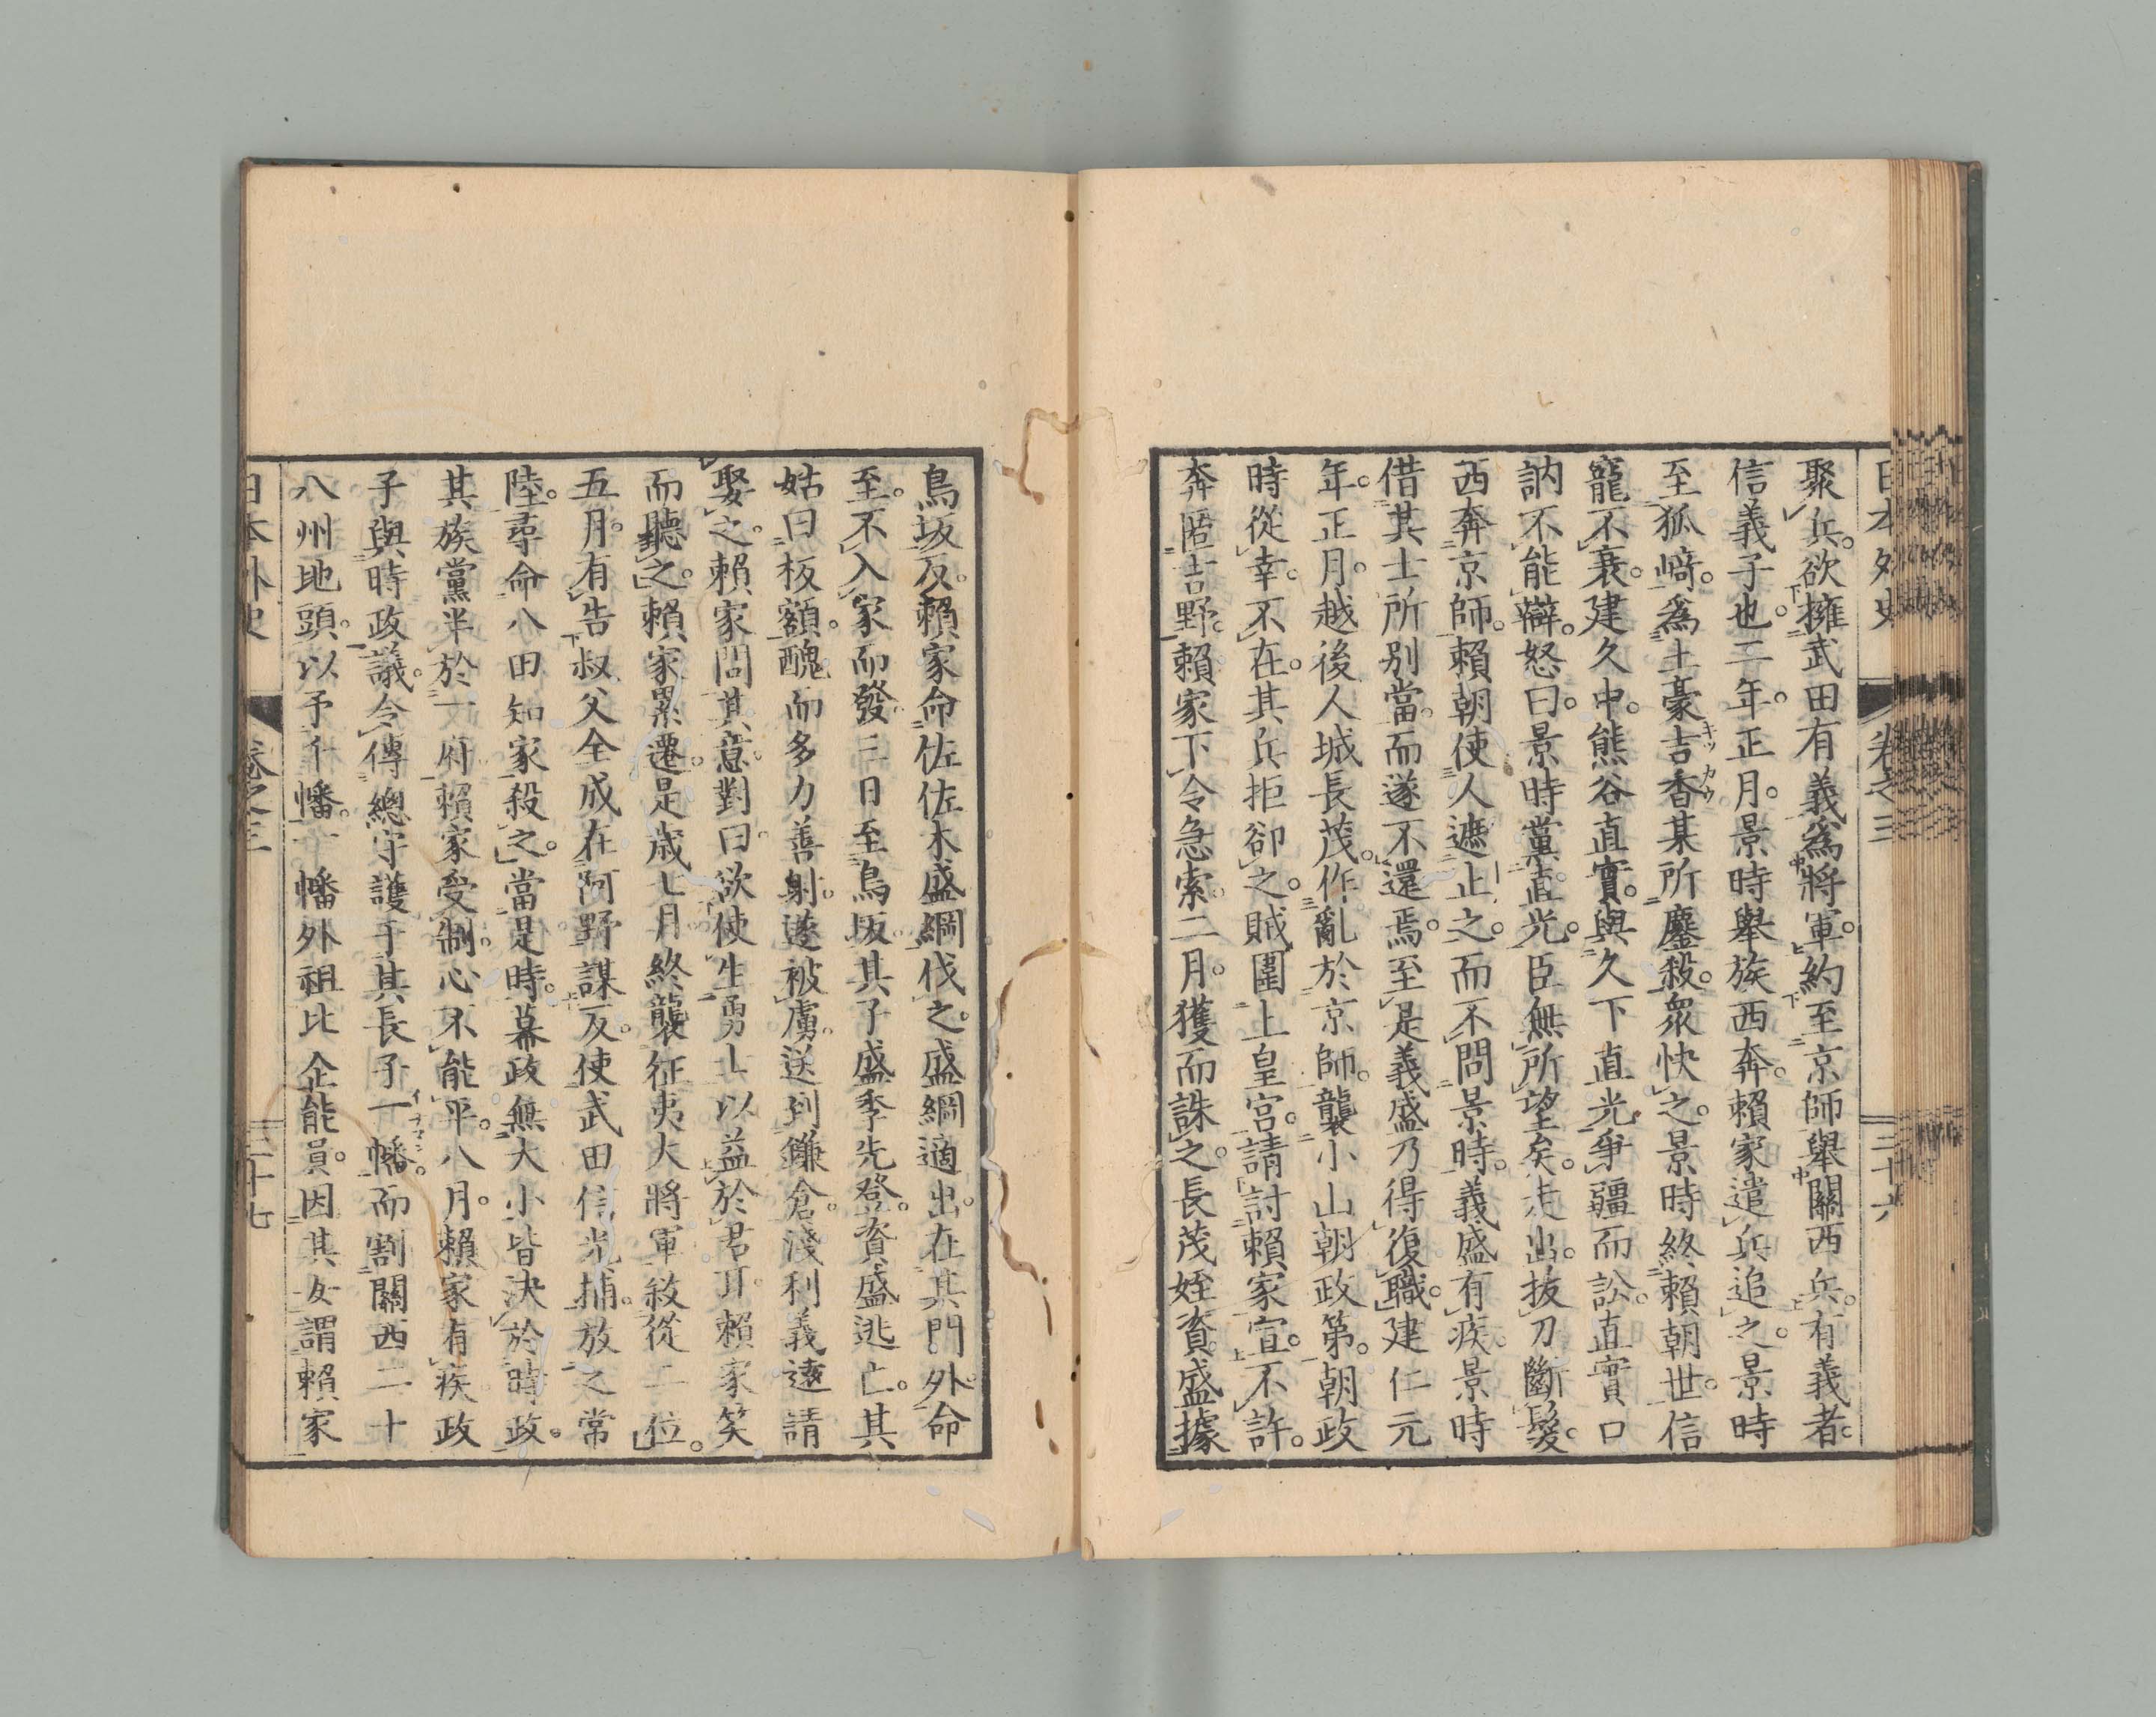 日本外史 卷之三 三十六
聚兵。欲擁武田有義爲將軍。約至京師舉關西兵。有義者。
信義子也。二年。正月。景時舉族西奔。賴家遣兵追之。景時
至狐﨑。爲土豪吉香某所鏖殺。衆快之。景時終賴朝世。信
寵不衰。建久中。熊谷直實。與久下直光爭疆而訟。直實口
訥不能辯。怒曰。景時黨直光。臣無所望矣。走出。拔刀斷髮。
西奔京師。賴朝使人遮止之。而不問景時。義盛有疾。景時
借其士所別當。而遂不還焉。至是義盛乃得復職。建仁元
年。正月。越後人城長茂。作亂於京師。襲小山朝政第。朝政
時從幸。不在。其兵拒卻之。賊圍上皇宮。請討賴家宣。不許。
奔匿吉野。賴家下令急索。二月。獲而誅之。長茂姪資盛據
鳥坂反。賴家命佐佐木盛綱伐之。盛綱適出在其門外。命
至。不入家而發。三日至鳥坂。其子盛季先登。資盛逃亡。其
姑曰板額。醜而多力善射。遂被虜。送到鎌倉。淺利義遠請
娶之。賴家問其意。對曰。欲使生勇士以益於君耳。賴家笑
而聽之。賴家累遷。是歲七月終襲征夷大將軍敍從二位。
五月。有告叔父全成在阿野謀反。使武田信光捕。放之常
陸。尋命八田知家殺之。當是時。幕政無大小皆決於時政。
其族黨半於一府。賴家受制。心不能平。八月。賴家有疾。政
子與時政議。令傳總守護于其長子一幡。而割關西二十
八州地頭。以予千幡。一幡外祖比企能員。因其女謂賴家
日本外史 卷之三 三十七